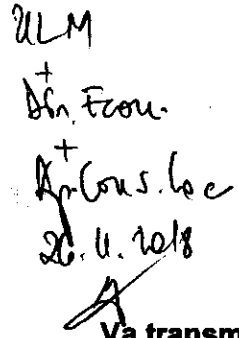 ULM
+
Dir. Econ.
+
Ap. Cons. loc
26. 11. 2018
Va transm